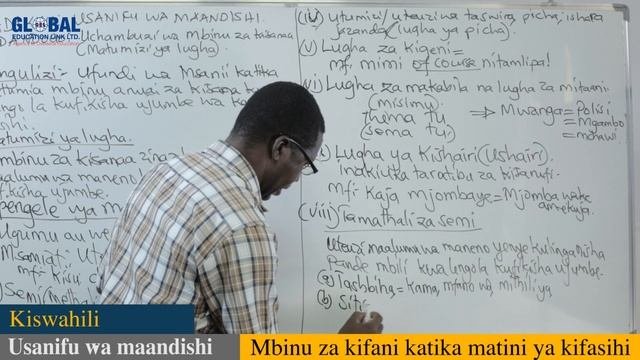 GLOBAL
EDUCATION LINK LTD.
USANIFU WA MAANDISHI.
Uchambuzi wa mbinu za kisanaa
(Matumizi ya lugha)
Ufundi wa Msanii katika
mbinu anuai za kisanaa
la kufikisha ujumbe wa
matumizi ya lugha.
mbinu za kisanaa
maalumu wa maneno
ujumbe.
Vipengele vya
Ugumu au
Msamiati
mf: Kisu
Semi
(iv) Utumizi/uteuzi wa taswira, picha, ishara
Jazanda (lugha ya picha).
(v) Lugha za kigeni:
mf: mimi of course nitamlipa!
(vi) Lugha za makabila na lugha za mitaani
(misimu)
hema tu
(soma tu)
⇒ Mwanga = Polisi
= Mgambo
Lugha ya Kishairi (Ushairi).
Inakiuka taratibu za kisarufi
mf: Kaja mjombaye = Mjomba wake
amekuja.
(viii) Tamathali za semi
Uteuzi maalumu wa maneno yenye kulinganisha
Pande mbili kwa lengo la kufikisha ujumbe.
(a) Tashbiha = Kama, mfano wa, mithili ya
(b) Siti
Kiswahili
Usanifu wa maandishi
Mbinu za kifani katika matini ya kifasihi